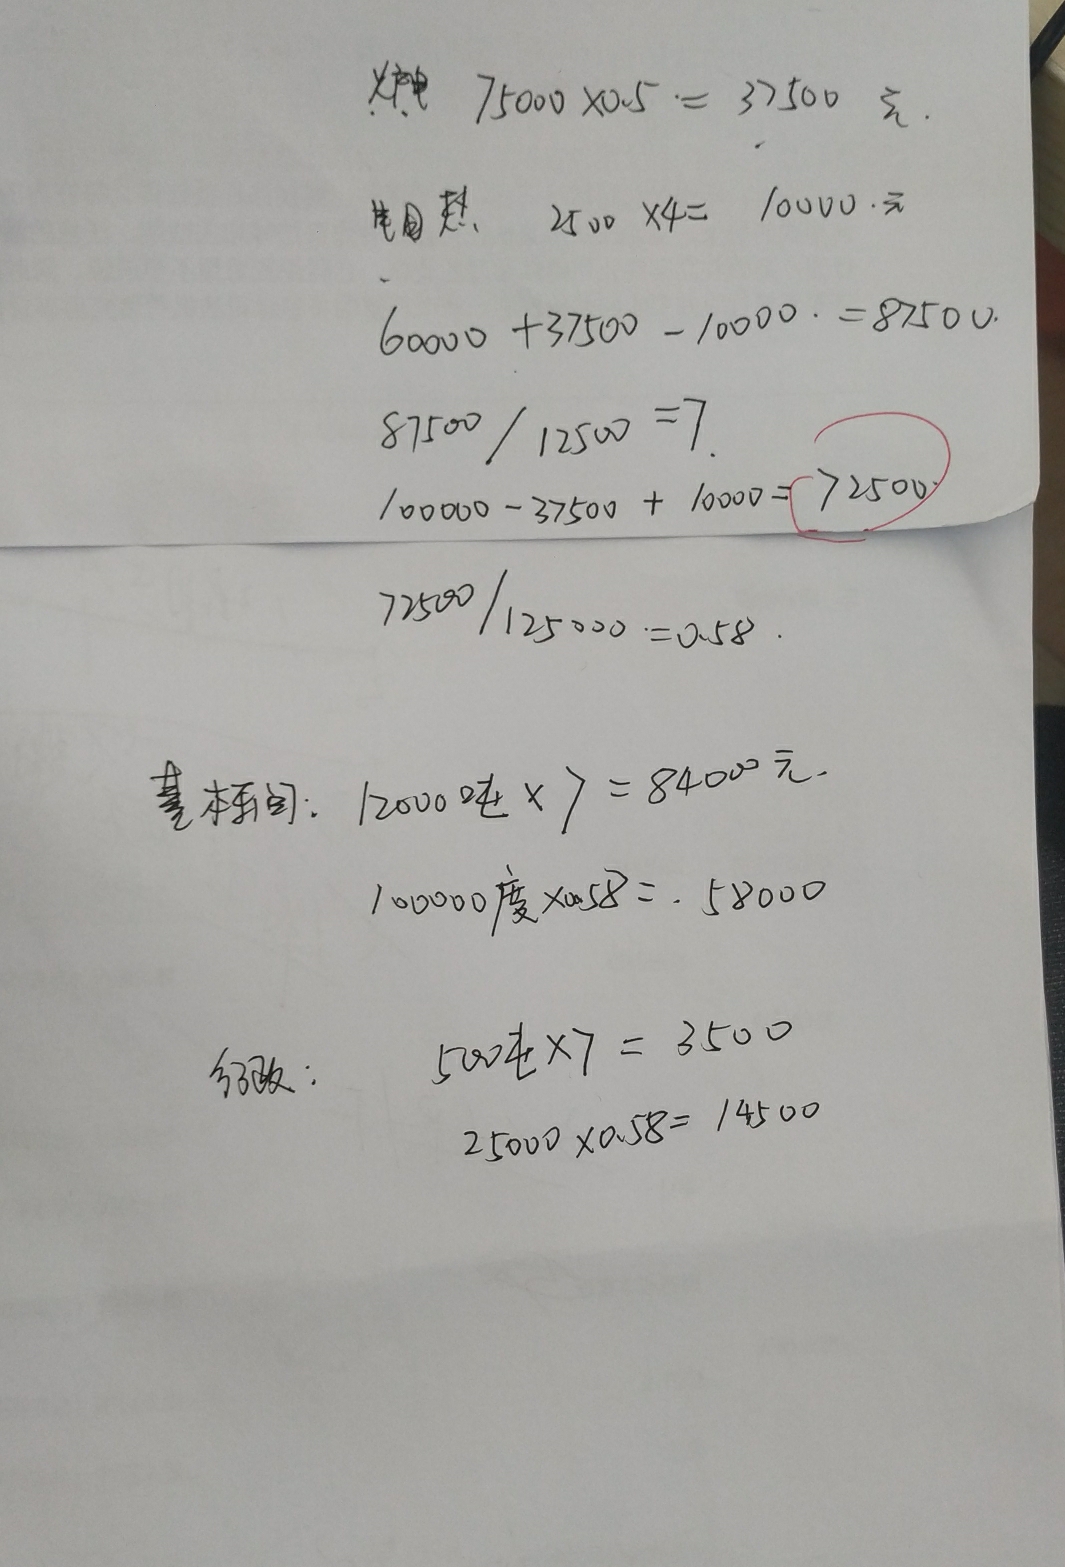 75000×0.5=37500 元.
2500×4=10000.元
60000+37500-10000.=87500.
87500/12500=7.
100000-37500+10000=72500.
72500/125000.=0.58.
基本车间: 12000吨×7=84000元.
100000度×0.58=.58000
500吨×7=3500
25000×0.58=14500